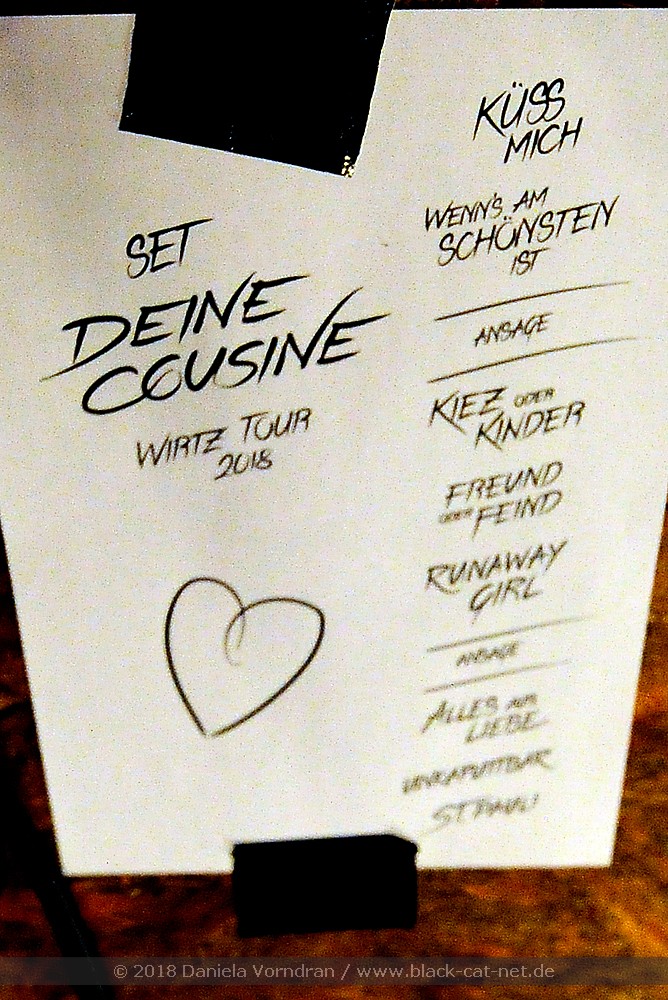 SET
DEINE
COUSINE
WIRTZ TOUR
2018
KÜSS
MICH
WENN'S AM
SCHÖNSTEN
IST
ANSAGE
KIEZ ODER
KINDER
FREUND
ODER FEIND
RUNAWAY
GIRL
ANSAGE
ALLES AUS
LIEBE
UNKAPUTTBAR
ST. PAULI
© 2018 Daniela Vorndran / www.black-cat-net.de